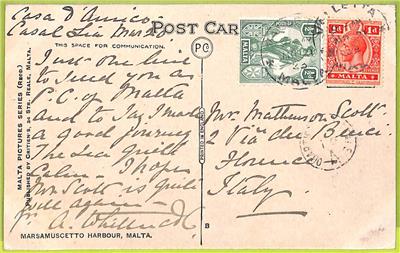 Casa D'Amico
Casal Lia Malta
POST CARD
THIS SPACE FOR COMMUNICATION.
Just one line
to send you a
P.C. of Malta
and to say I had
a good journey
The sea quite
calm. I hope
Mr Scott is quite
well again
A.
MARSAMUSCETTO HARBOUR, MALTA.
MALTA PICTURES SERIES (Regd.)
PUBLISHED BY CRITIEN'S, 34 STR. REALE, MALTA.
PC
PRINTED IN ENGLAND
B
VALLETTA
MALTA
1d 1d
MALTA
Mrs. Mathewson Scott
2 Via dei Benci
Florence
Italy